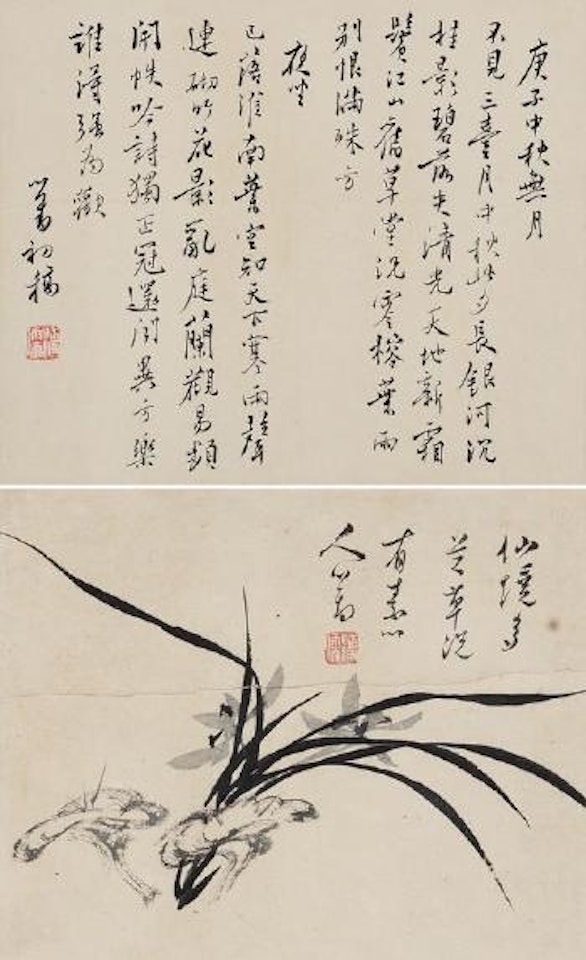 庚子中秋無月
不見三臺月中秋此夕長銀河沉
桂影碧落失清光天地新霜
鬢江山舊草堂況零榕葉雨
別恨滿殊方
夜坐
已落淮南葉空知天下寒雨聲
連砌竹花影亂庭蘭觀易頻
開帙吟詩獨正冠遥聞異方樂
誰得強為歡
心畬初稿
仙境多
芝草況
有素心
人心畬